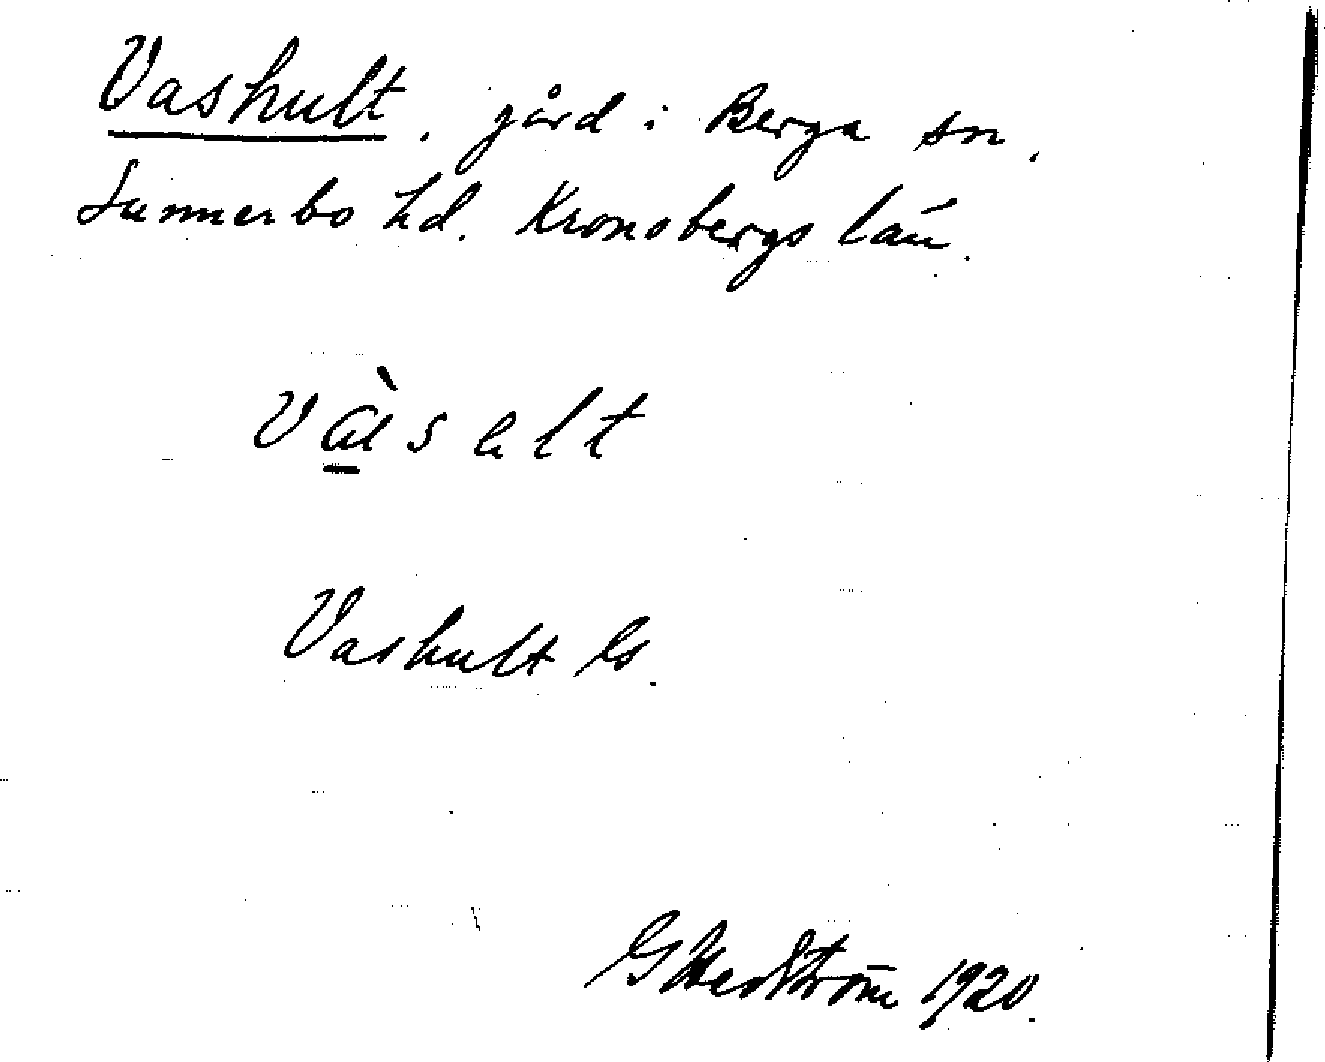 Vashult, gård i Berga sn,
Sunnerbo hd. Kronobergs län.
Vàsalt
Vashult Gs.
G Hedström 1920.